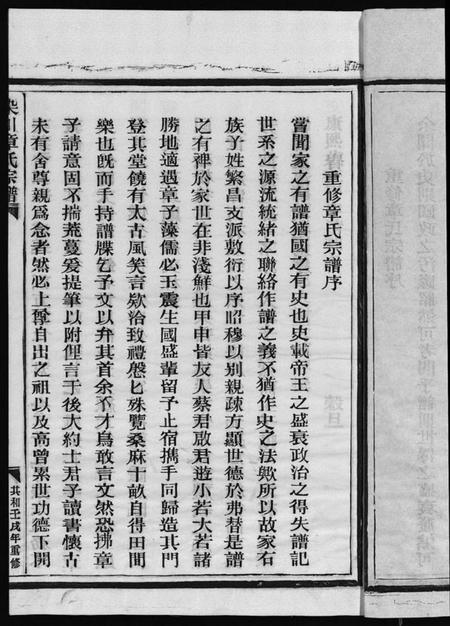 重修章氏宗譜序
嘗聞家之有譜猶國之有史也史載帝王之盛衰政治之得失譜記
世系之源流統緒之聯絡作譜之義不猶作史之法歟所以故家右
族子姓繁昌支派敷衍以序昭穆以別親疎方顯世德於弗替是譜
之有裨於家世在非淺鮮也甲申皆友人蔡君啟君遊小若大若諸
勝地適遇章子藻儒必玉震生國盛輩留予止宿携手同歸造其門
登其堂饒有太古風笑言欵洽致禮慇匕殊覽桑麻十畝自得田間
樂也旣而手持譜牒乞予文以弁其首余不才烏敢言文然恐拂章
子請意固不揣蕪蔓爰提筆以附俚言于後大約士君子讀書懷古
未有舍尊親爲念者然必上尊自出之祖以及高曾累世功德下開
川章氏宗譜
共和壬戌年重修
重修章氏宗譜序